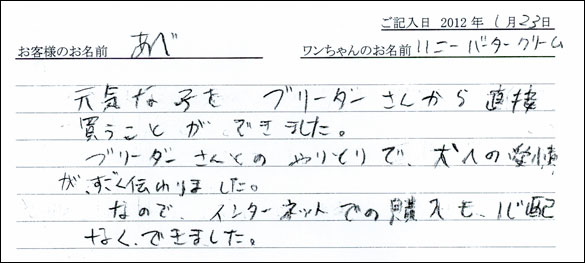 ご記入日 2012年 1月23日
お客様のお名前 あべ ワンちゃんのお名前 ハニーバタークリーム
元気な子を ブリーダーさんから 直接
買うことが できました。
ブリーダーさんとの やりとりで、犬への愛情
が、すごく伝わりました。
なので、インターネットでの購入も、心配
なく、できました。